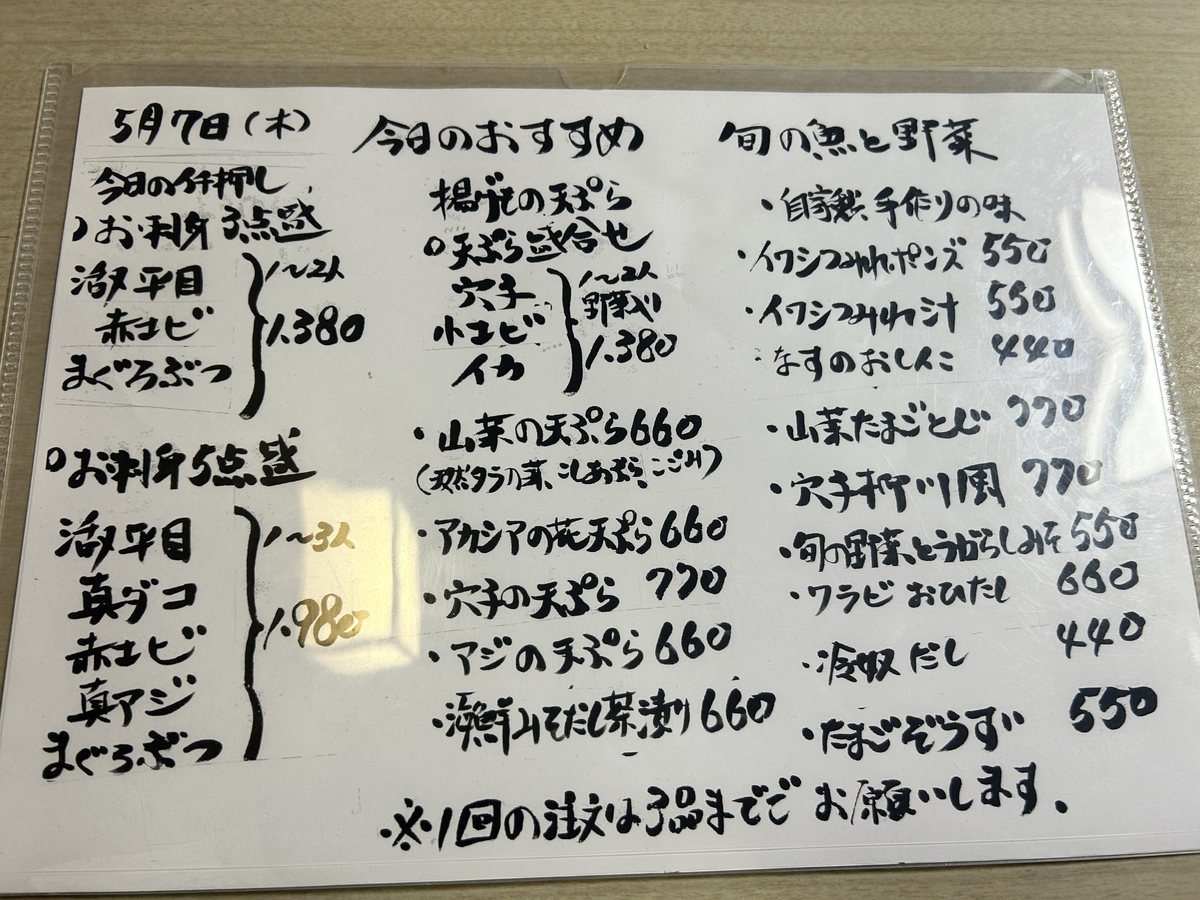 5月7日(木)
今日のおすすめ
旬の魚と野菜
今日のイチ押し
お刺身3点盛
活〆平目
赤エビ
まぐろぶつ
1〜2人
1,380
お刺身5点盛
活〆平目
真ダコ
赤エビ
真アジ
まぐろぶつ
1〜3人
1,980
揚げもの天ぷら
天ぷら盛合せ
穴子
小エビ
イカ
1〜2人
野菜入り
1,380
・山菜の天ぷら660
(天然タラの芽、こしあぶら、こごみ)
・アカシアの花天ぷら660
・穴子の天ぷら 770
・アジの天ぷら660
・海鮮みそだし茶漬け660
・自家製 手作りの味
・イワシつみれポンズ 550
・イワシつみれ汁 550
・なすのおしんこ 440
・山菜たまごとじ 770
・穴子柳川風 770
・旬の野菜、とうがらしみそ 550
・ワラビ おひたし 660
・冷奴 だし 440
・たまごぞうすい 550
※1回の注文は3品までで お願いします.